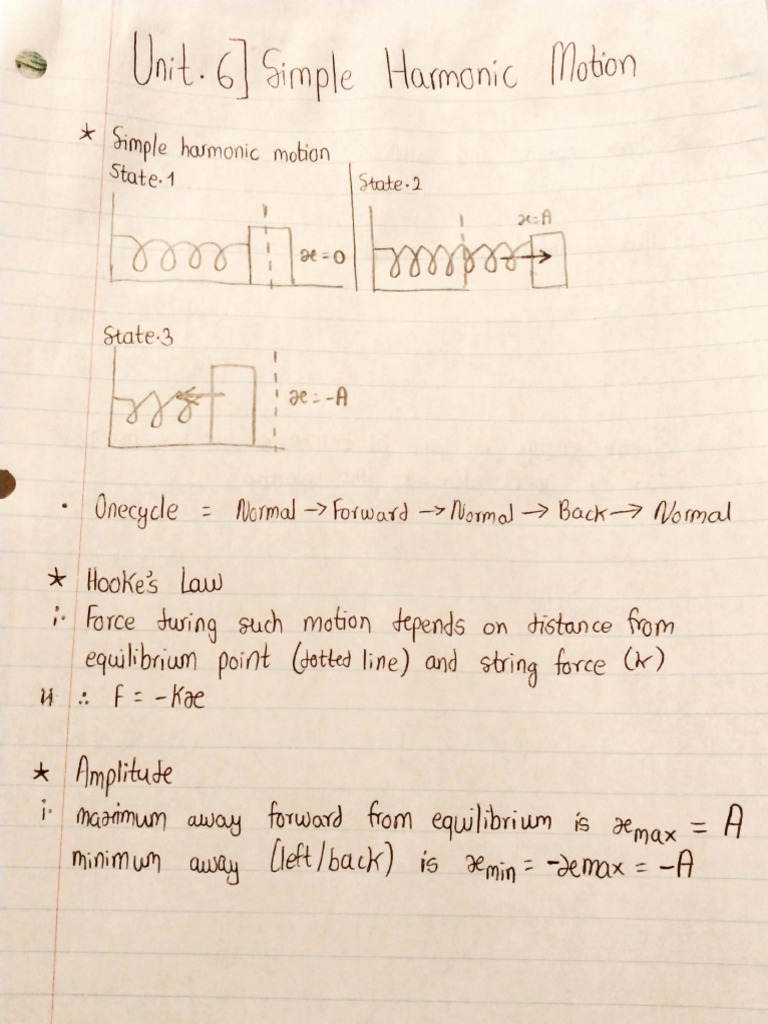 Unit. 6] Simple Harmonic Motion
* Simple harmonic motion
State.1
State.2
x=0
x=A
State.3
x=-A
· Onecycle = Normal → Forward → Normal → Back → Normal
* Hooke's Law
i. Force during such motion depends on distance from
equilibrium point (dotted line) and string force (k)
ii ∴ F = -kx
* Amplitude
i. maximum away forward from equilibrium is xmax = A
minimum away (left/back) is xmin = -xmax = -A